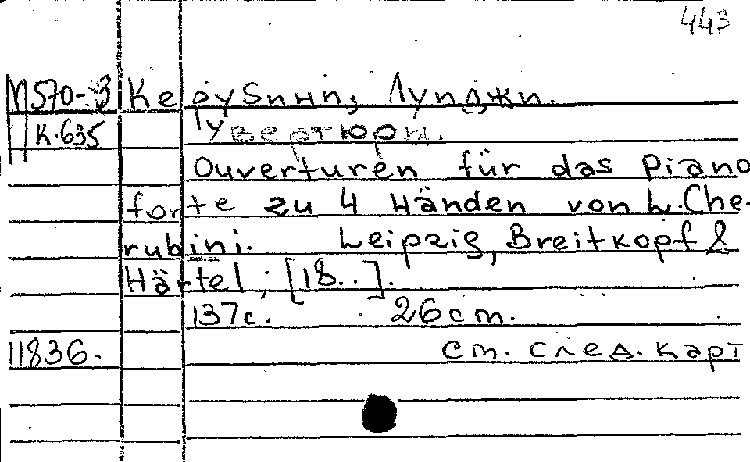 443
М570-3 Керубини, Луиджи.
К.635 [Увертюри.
Ouverturen für das Piano
forte zu 4 Händen von L. Che-
rubini. Leipzig, Breitkopf &
Härtel, [18..].
137с. 26cm.
11836. см. след. карт